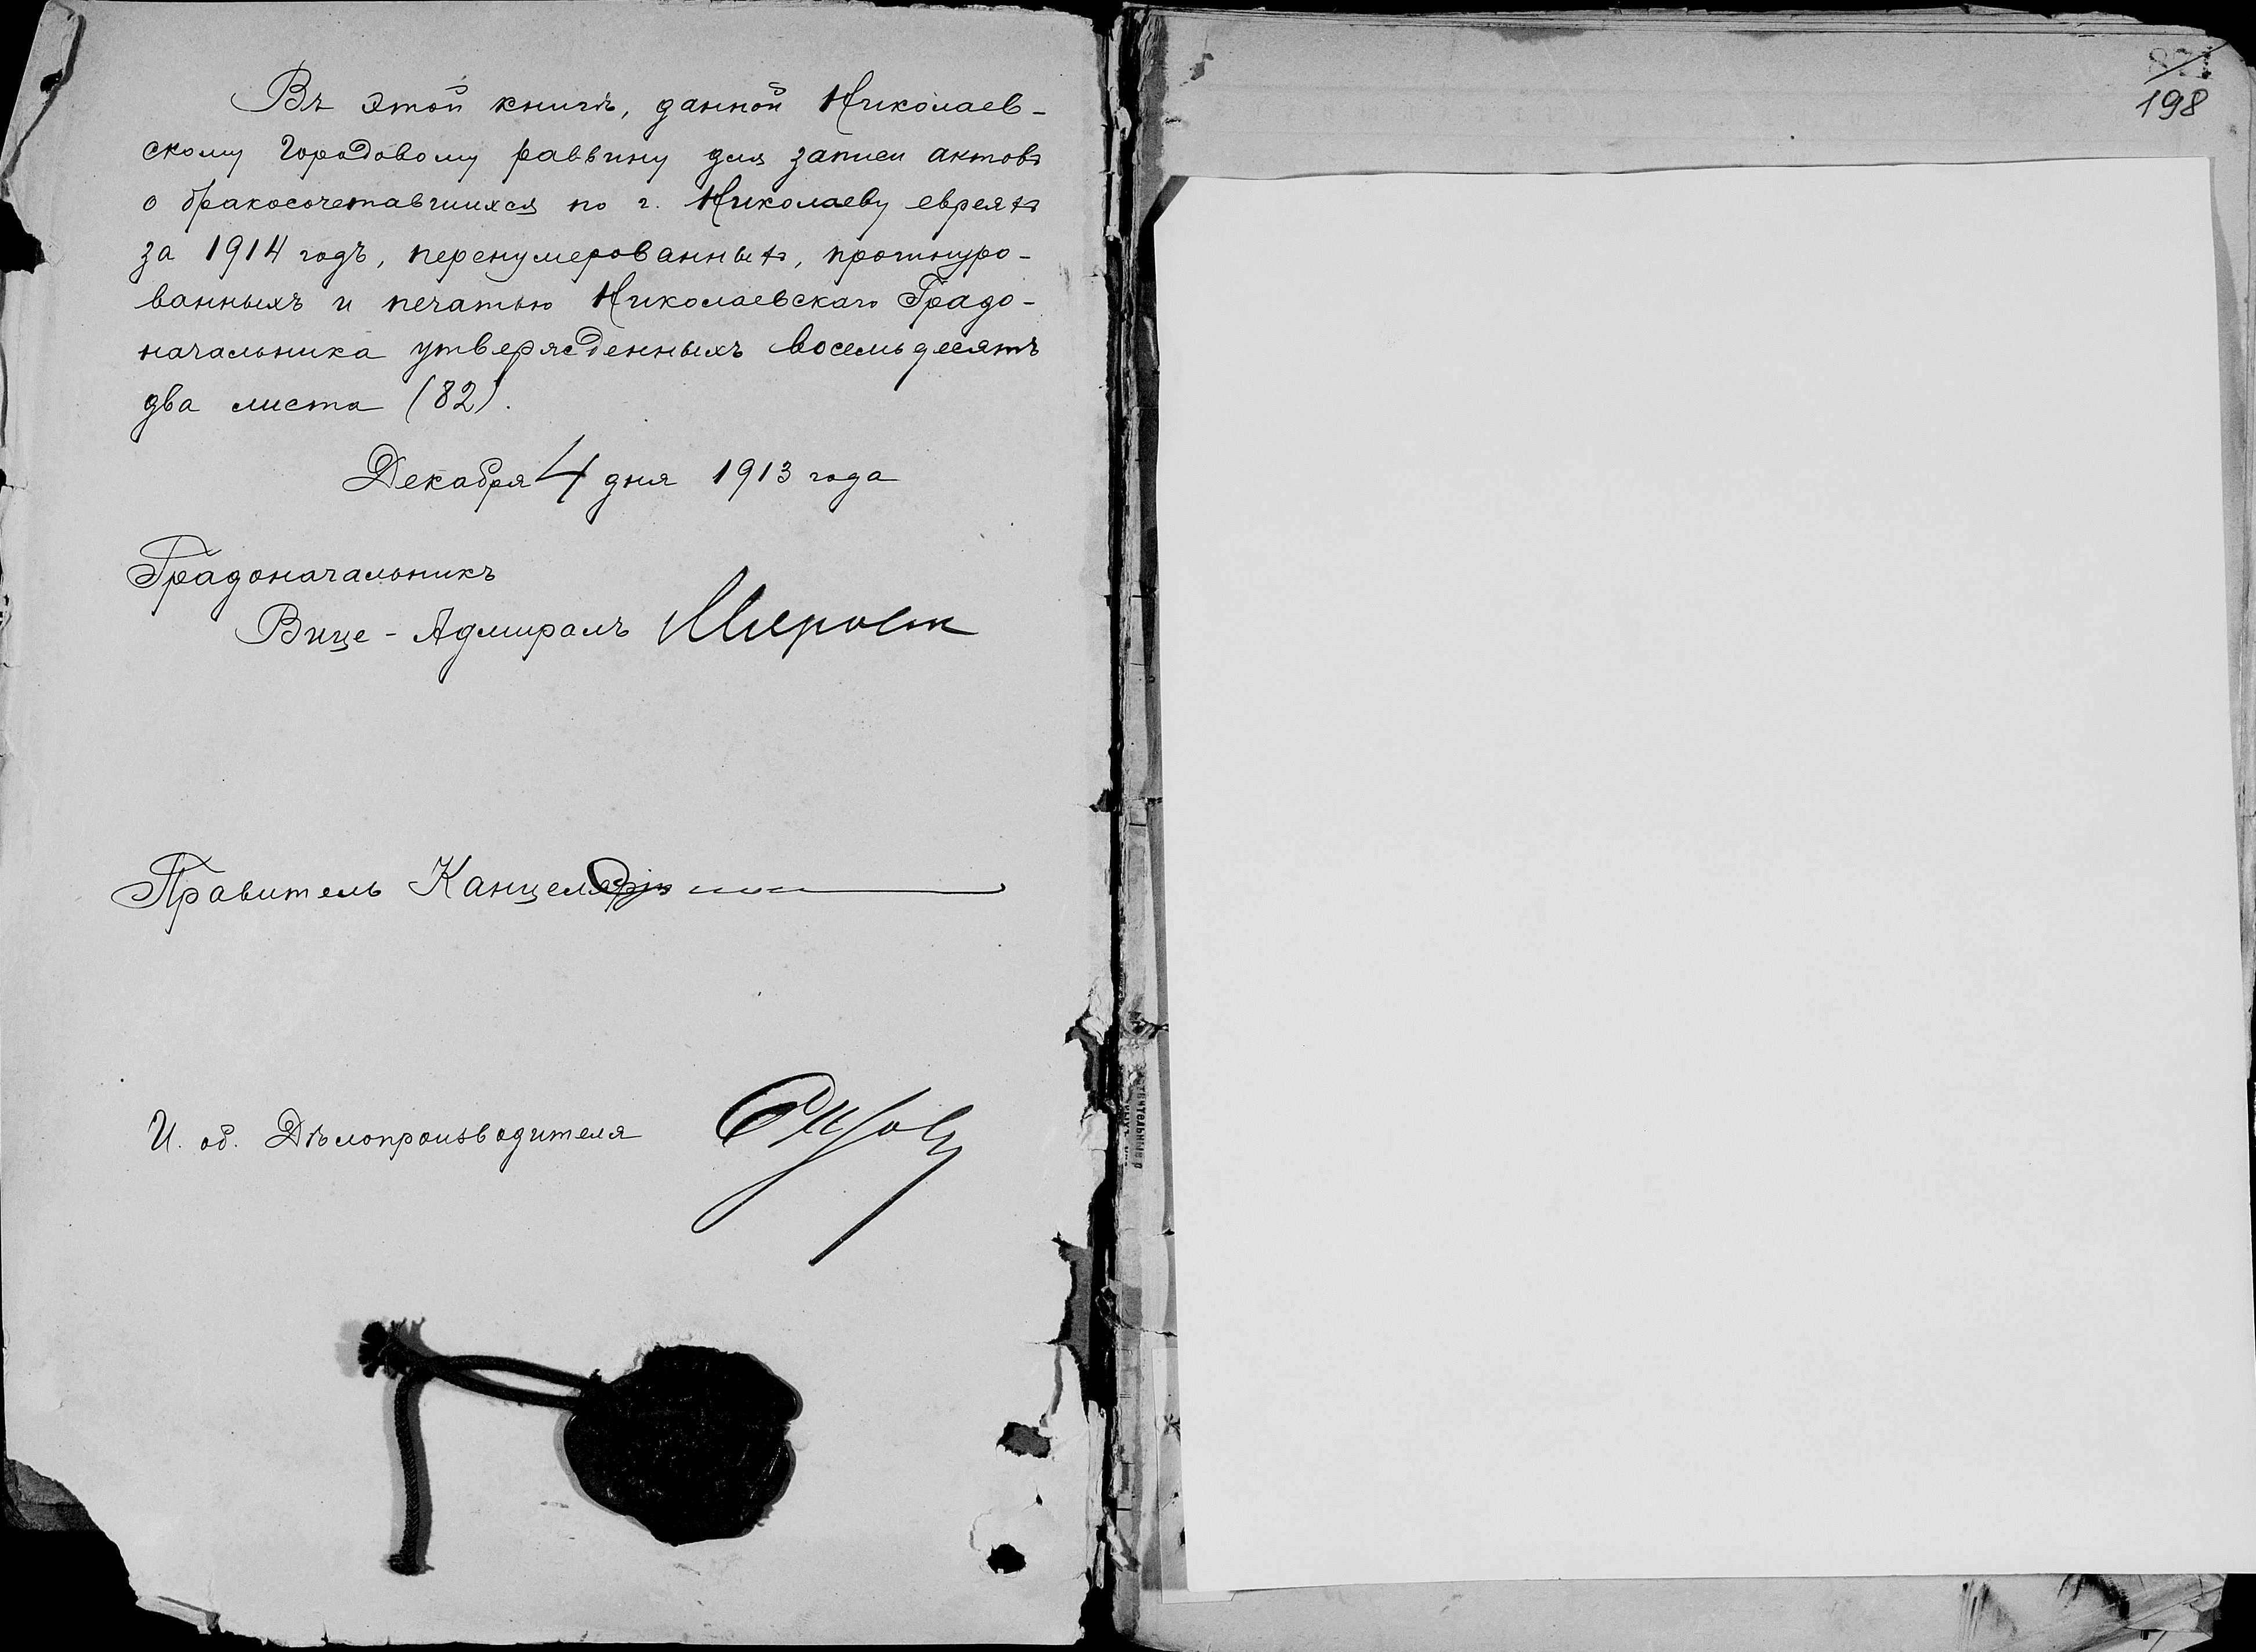 Въ этой книгѣ, данной Николаев-
скому Городовому раввину для записи актовъ
о бракосочетавшихся по г. Николаеву евреяхъ
за 1914 годъ, перенумерованныхъ, прошнуро-
ванныхъ и печатью Николаевскаго Градо-
начальника утвержденныхъ восемьдесятъ
два листа (82).
Декабря 4 дня 1913 года
Градоначальникъ
Вице-Адмиралъ
Правитель Канцеляріи
И. об. Дѣлопроизводителя
198